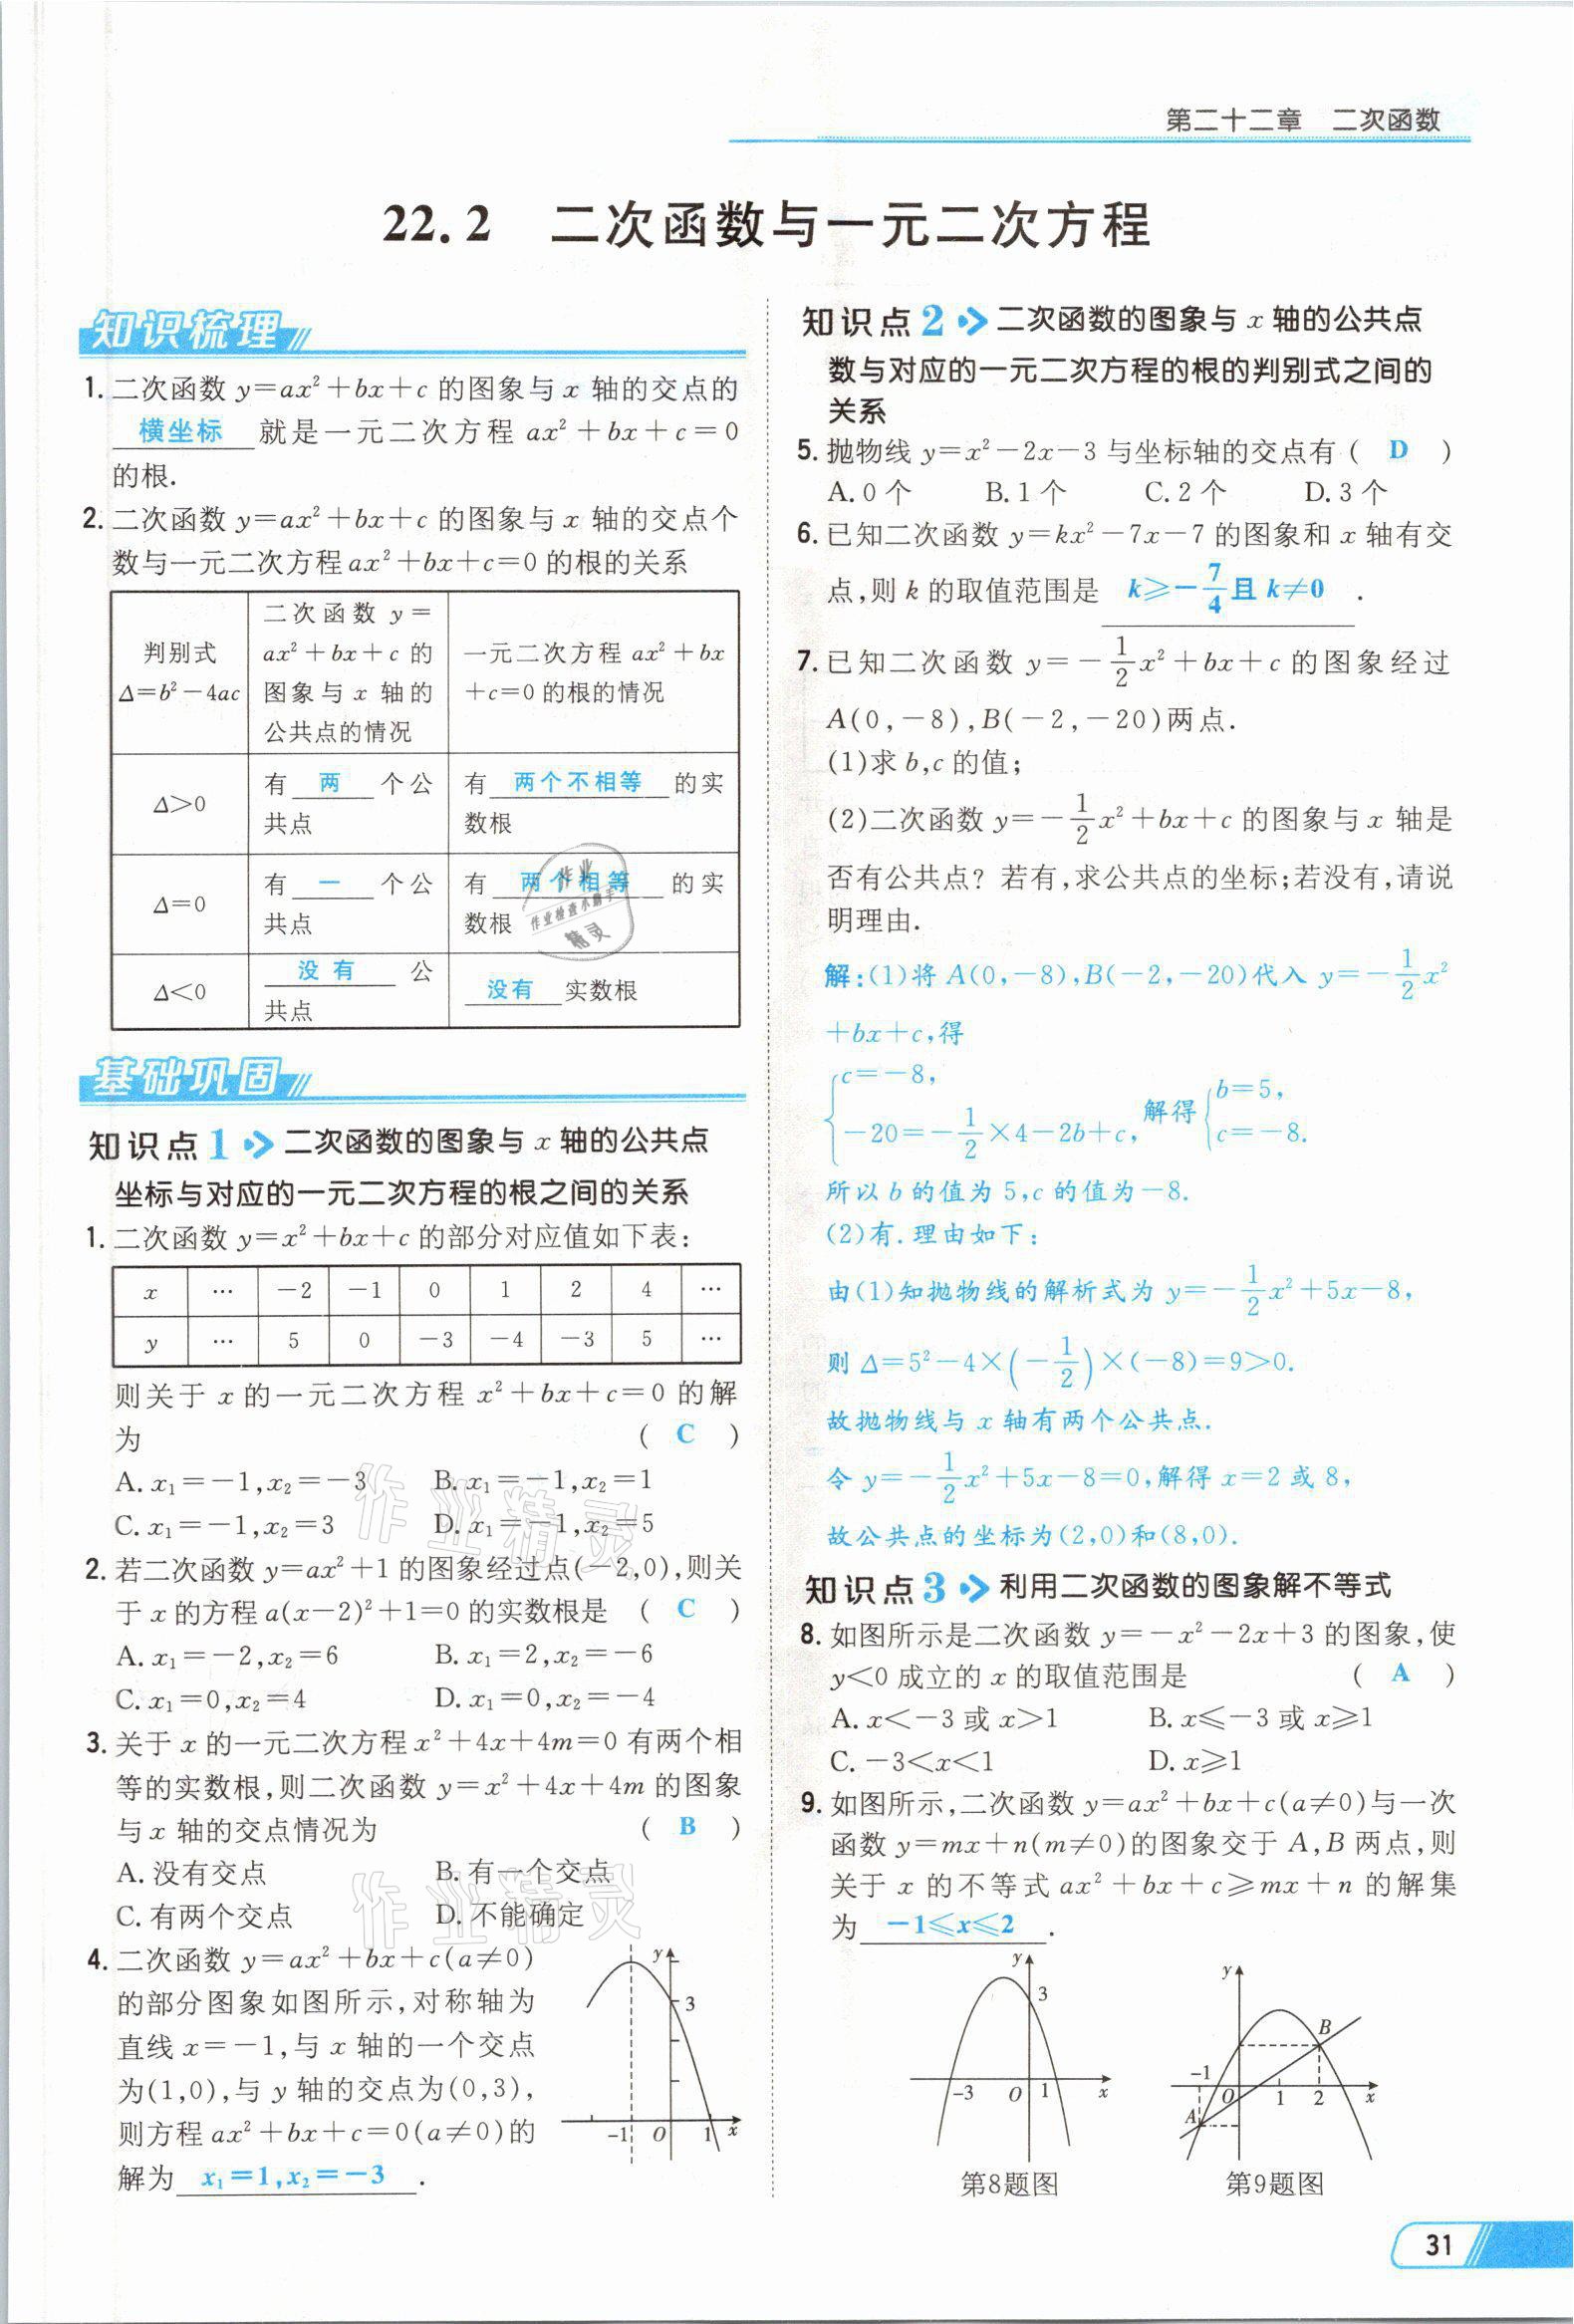 第二十二章 二次函数
22.2 二次函数与一元二次方程
知识梳理
1. 二次函数 y=ax²+bx+c 的图象与 x 轴的交点的
横坐标 就是一元二次方程 ax²+bx+c=0
的根.
2. 二次函数 y=ax²+bx+c 的图象与 x 轴的交点个
数与一元二次方程 ax²+bx+c=0 的根的关系
判别式
Δ=b²-4ac
二次函数 y=
ax²+bx+c 的
图象与 x 轴的
公共点的情况
一元二次方程 ax²+bx
+c=0 的根的情况
Δ>0
有 两 个公
共点
有 两个不相等 的实
数根
Δ=0
有 一 个公
共点
有 两个相等 的实
数根
Δ<0
没有 公
共点
没有 实数根
基础巩固
知识点1 二次函数的图象与 x 轴的公共点
坐标与对应的一元二次方程的根之间的关系
1. 二次函数 y=x²+bx+c 的部分对应值如下表:
x … -2 -1 0 1 2 4 …
y … 5 0 -3 -4 -3 5 …
则关于 x 的一元二次方程 x²+bx+c=0 的解
为 ( C )
A. x₁=-1,x₂=-3 B. x₁=-1,x₂=1
C. x₁=-1,x₂=3 D. x₁=-1,x₂=5
2. 若二次函数 y=ax²+1 的图象经过点(-2,0),则关
于 x 的方程 a(x-2)²+1=0 的实数根是 ( C )
A. x₁=-2,x₂=6 B. x₁=2,x₂=-6
C. x₁=0,x₂=4 D. x₁=0,x₂=-4
3. 关于 x 的一元二次方程 x²+4x+4m=0 有两个相
等的实数根,则二次函数 y=x²+4x+4m 的图象
与 x 轴的交点情况为 ( B )
A. 没有交点 B. 有一个交点
C. 有两个交点 D. 不能确定
4. 二次函数 y=ax²+bx+c(a≠0)
的部分图象如图所示,对称轴为
直线 x=-1,与 x 轴的一个交点
为(1,0),与 y 轴的交点为(0,3),
则方程 ax²+bx+c=0(a≠0)的
解为 x₁=1,x₂=-3 .
y
3
-1 O 1 x
知识点2 二次函数的图象与 x 轴的公共点
数与对应的一元二次方程的根的判别式之间的
关系
5. 抛物线 y=x²-2x-3 与坐标轴的交点有 ( D )
A. 0 个 B. 1 个 C. 2 个 D. 3 个
6. 已知二次函数 y=kx²-7x-7 的图象和 x 轴有交
点,则 k 的取值范围是 k≥-7/4且 k≠0 .
7. 已知二次函数 y=-1/2x²+bx+c 的图象经过
A(0,-8),B(-2,-20)两点.
(1)求 b,c 的值;
(2)二次函数 y=-1/2x²+bx+c 的图象与 x 轴是
否有公共点? 若有,求公共点的坐标;若没有,请说
明理由.
解:(1)将 A(0,-8),B(-2,-20)代入 y=-1/2x²
+bx+c,得
{c=-8,
-20=-1/2×4-2b+c, 解得 {b=5,
c=-8.
所以 b 的值为 5,c 的值为-8.
(2)有.理由如下:
由(1)知抛物线的解析式为 y=-1/2x²+5x-8,
则 Δ=5²-4×(-1/2)×(-8)=9>0.
故抛物线与 x 轴有两个公共点.
令 y=-1/2x²+5x-8=0,解得 x=2 或 8,
故公共点的坐标为(2,0)和(8,0).
知识点3 利用二次函数的图象解不等式
8. 如图所示是二次函数 y=-x²-2x+3 的图象,使
y<0 成立的 x 的取值范围是 ( A )
A. x<-3 或 x>1 B. x≤-3 或 x≥1
C. -3<x<1 D. x≥1
9. 如图所示,二次函数 y=ax²+bx+c(a≠0)与一次
函数 y=mx+n(m≠0)的图象交于 A,B 两点,则
关于 x 的不等式 ax²+bx+c≥mx+n 的解集
为 -1≤x≤2 .
y
3
-3 O 1 x
第8题图
y
B
-1
O 1 2 x
A
第9题图
作业
作业检查小助手
精灵
作业精灵
作业精灵
31